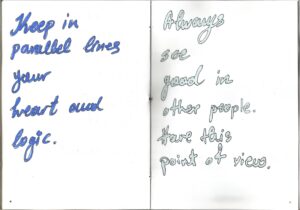 Keep in
parallel lines
your
heart and
logic.
Always
see
good in
other people.
Have this
point of view.